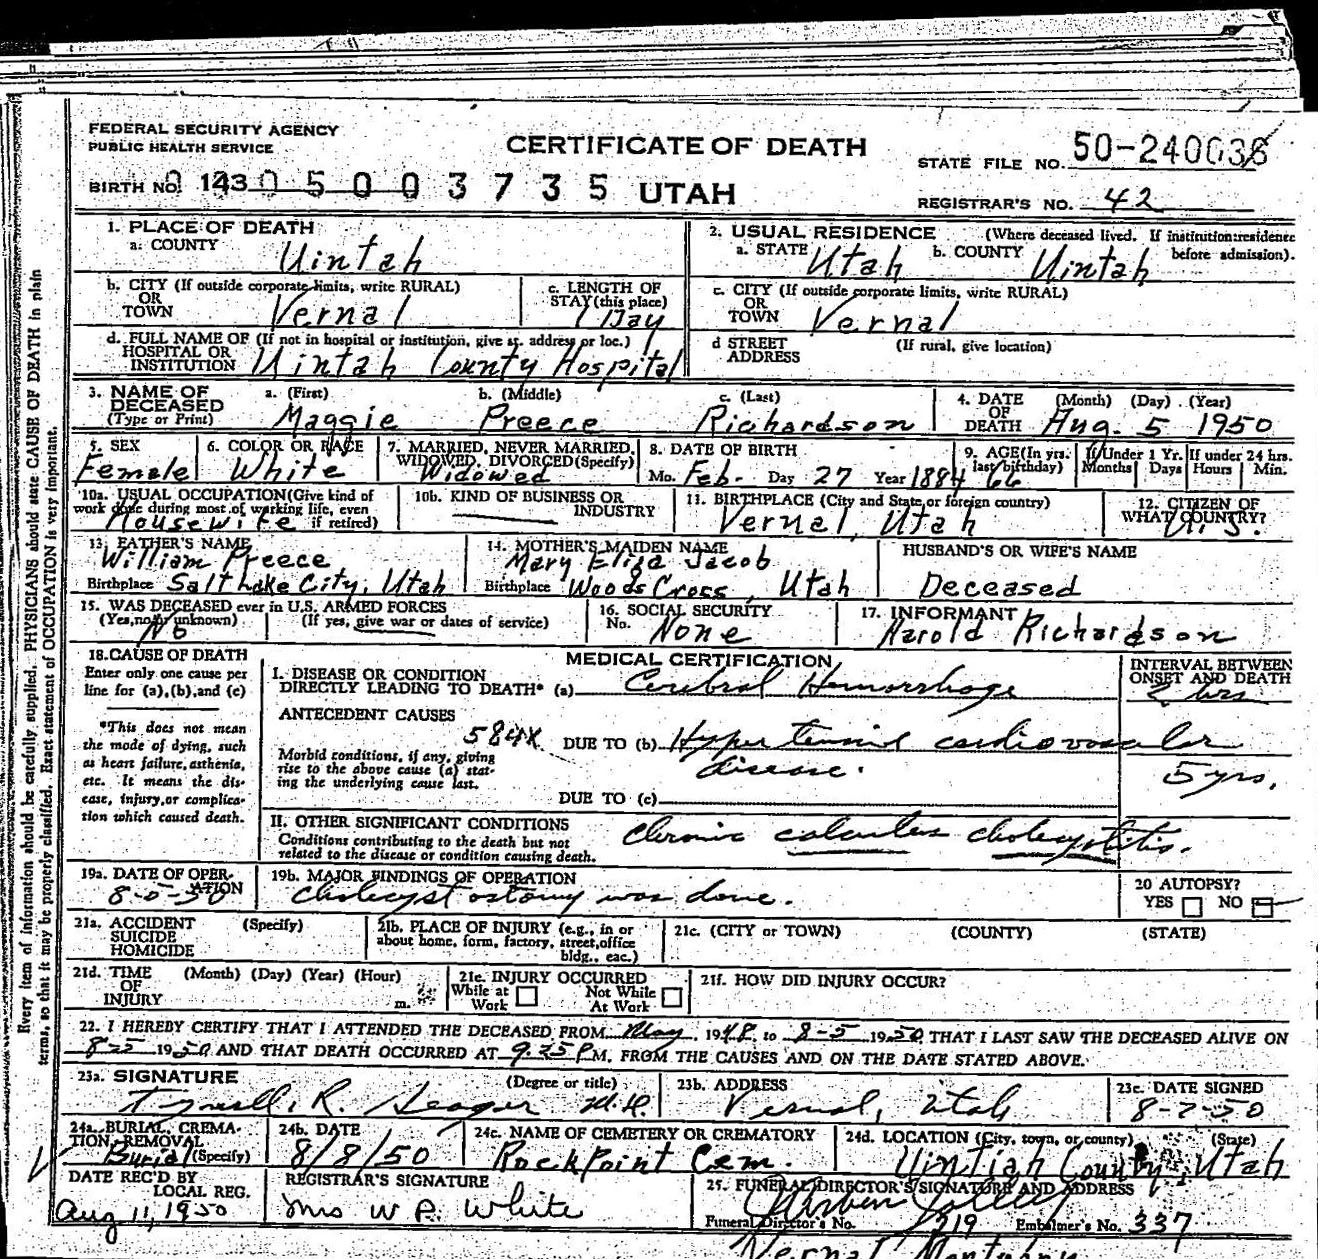 FEDERAL SECURITY AGENCY
PUBLIC HEALTH SERVICE
CERTIFICATE OF DEATH
STATE FILE NO. 50-240036
BIRTH NO. 143 0 5 0 0 3 7 3 5 UTAH
REGISTRAR'S NO. 42
1. PLACE OF DEATH
a. COUNTY Uintah
2. USUAL RESIDENCE (Where deceased lived. If institution: residence before admission).
a. STATE Utah b. COUNTY Uintah
b. CITY (If outside corporate limits, write RURAL) OR TOWN Vernal
c. LENGTH OF STAY (this place) 1 Day
c. CITY (If outside corporate limits, write RURAL) OR TOWN Vernal
d. FULL NAME OF (If not in hospital or institution, give st. address or loc.) HOSPITAL OR INSTITUTION Uintah County Hospital
d STREET ADDRESS (If rural, give location)
3. NAME OF DECEASED (Type or Print)
a. (First) Maggie b. (Middle) Preece c. (Last) Richardson
4. DATE OF DEATH (Month) (Day) (Year) Aug. 5 1950
5. SEX Female
6. COLOR OR RACE White
7. MARRIED, NEVER MARRIED, WIDOWED, DIVORCED (Specify) Widowed
8. DATE OF BIRTH Mo. Feb. Day 27 Year 1884
9. AGE (In yrs. last birthday) 66
If Under 1 Yr. Months Days
If under 24 hrs. Hours Min.
10a. USUAL OCCUPATION (Give kind of work done during most of working life, even if retired) Housewife
10b. KIND OF BUSINESS OR INDUSTRY
11. BIRTHPLACE (City and State, or foreign country) Vernal, Utah
12. CITIZEN OF WHAT COUNTRY? U.S.
13. FATHER'S NAME William Preece
Birthplace Salt Lake City, Utah
14. MOTHER'S MAIDEN NAME Mary Eliza Jacob
Birthplace Woods Cross, Utah
HUSBAND'S OR WIFE'S NAME
Deceased
15. WAS DECEASED ever in U.S. ARMED FORCES
(Yes, no or unknown) No (If yes, give war or dates of service)
16. SOCIAL SECURITY No. None
17. INFORMANT Harold Richardson
18. CAUSE OF DEATH
Enter only one cause per line for (a), (b), and (c)
*This does not mean the mode of dying, such as heart failure, asthenia, etc. It means the disease, injury, or complication which caused death.
MEDICAL CERTIFICATION
I. DISEASE OR CONDITION DIRECTLY LEADING TO DEATH* (a) Cerebral Hemorrhage
INTERVAL BETWEEN ONSET AND DEATH
2 hrs
ANTECEDENT CAUSES
584X
Morbid conditions, if any, giving rise to the above cause (a) stating the underlying cause last.
DUE TO (b) Hypertensive cardiovascular disease.
5 yrs.
DUE TO (c)
II. OTHER SIGNIFICANT CONDITIONS
Conditions contributing to the death but not related to the disease or condition causing death.
Chronic calculus cholecystitis.
19a. DATE OF OPERATION 8-5-50
19b. MAJOR FINDINGS OF OPERATION
Cholecystostomy was done.
20 AUTOPSY?
YES NO
21a. ACCIDENT SUICIDE HOMICIDE (Specify)
21b. PLACE OF INJURY (e.g., in or about home, form, factory, street, office bldg., eac.)
21c. (CITY or TOWN) (COUNTY) (STATE)
21d. TIME OF INJURY (Month) (Day) (Year) (Hour) m.
21e. INJURY OCCURRED
While at Work Not While At Work
21f. HOW DID INJURY OCCUR?
22. I HEREBY CERTIFY THAT I ATTENDED THE DECEASED FROM May 1948 to 8-5 1950 THAT I LAST SAW THE DECEASED ALIVE ON
8-5 1950 AND THAT DEATH OCCURRED AT 9:25 P M, FROM THE CAUSES AND ON THE DATE STATED ABOVE.
23a. SIGNATURE (Degree or title)
R. Seager M.D.
23b. ADDRESS
Vernal, Utah
23c. DATE SIGNED
8-7-50
24a. BURIAL, CREMATION, REMOVAL (Specify) Burial
24b. DATE
8/8/50
24c. NAME OF CEMETERY OR CREMATORY
Rockpoint Cem.
24d. LOCATION (City, town, or county) (State)
Uintah County, Utah
DATE REC'D BY LOCAL REG.
Aug 11, 1950
REGISTRAR'S SIGNATURE
Mrs W P. White
25. FUNERAL DIRECTOR'S SIGNATURE AND ADDRESS
Funeral Director's No. 1219 Embalmer's No. 337
Vernal Mortuary
Every item of information should be carefully supplied. PHYSICIANS should state CAUSE OF DEATH in plain
terms, so that it may be properly classified. Exact statement of OCCUPATION is very important.